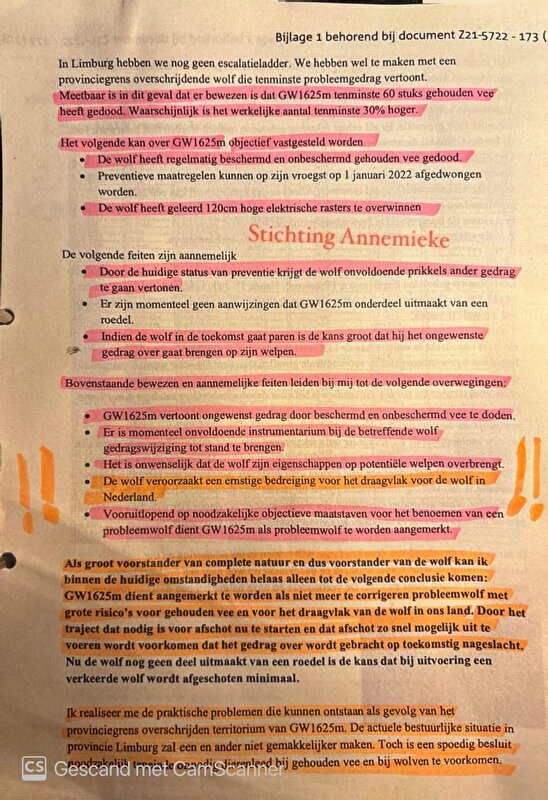 Bijlage 1 behorend bij document Z21-5722 - 173 (
In Limburg hebben we nog geen escalatieladder. We hebben wel te maken met een
provinciegrens overschrijdende wolf die tenminste probleemgedrag vertoont.
Meetbaar is in dit geval dat er bewezen is dat GW1625m tenminste 60 stuks gehouden vee
heeft gedood. Waarschijnlijk is het werkelijke aantal tenminste 30% hoger.
Het volgende kan over GW1625m objectief vastgesteld worden
• De wolf heeft regelmatig beschermd en onbeschermd gehouden vee gedood.
• Preventieve maatregelen kunnen op zijn vroegst op 1 januari 2022 afgedwongen
worden.
• De wolf heeft geleerd 120cm hoge elektrische rasters te overwinnen
Stichting Annemieke
De volgende feiten zijn aannemelijk
• Door de huidige status van preventie krijgt de wolf onvoldoende prikkels ander gedrag
te gaan vertonen.
• Er zijn momenteel geen aanwijzingen dat GW1625m onderdeel uitmaakt van een
roedel.
• Indien de wolf in de toekomst gaat paren is de kans groot dat hij het ongewenste
gedrag over gaat brengen op zijn welpen.
Bovenstaande bewezen en aannemelijke feiten leiden bij mij tot de volgende overwegingen:
• GW1625m vertoont ongewenst gedrag door beschermd en onbeschermd vee te doden.
• Er is momenteel onvoldoende instrumentarium bij de betreffende wolf
gedragswijziging tot stand te brengen.
• Het is onwenselijk dat de wolf zijn eigenschappen op potentiële welpen overbrengt.
• De wolf veroorzaakt een ernstige bedreiging voor het draagvlak voor de wolf in
Nederland.
• Vooruitlopend op noodzakelijke objectieve maatstaven voor het benoemen van een
probleemwolf dient GW1625m als probleemwolf te worden aangemerkt.
!! !!
Als groot voorstander van complete natuur en dus voorstander van de wolf kan ik
binnen de huidige omstandigheden helaas alleen tot de volgende conclusie komen:
GW1625m dient aangemerkt te worden als niet meer te corrigeren probleemwolf met
grote risico's voor gehouden vee en voor het draagvlak van de wolf in ons land. Door het
traject dat nodig is voor afschot nu te starten en dat afschot zo snel mogelijk uit te
voeren wordt voorkomen dat het gedrag over wordt gebracht op toekomstig nageslacht.
Nu de wolf nog geen deel uitmaakt van een roedel is de kans dat bij uitvoering een
verkeerde wolf wordt afgeschoten minimaal.
Ik realiseer me de praktische problemen die kunnen ontstaan als gevolg van het
provinciegrens overschrijden territorium van GW1625m. De actuele bestuurlijke situatie in
provincie Limburg zal een en ander niet gemakkelijker maken. Toch is een spoedig besluit
noodzakelijk bij gehouden vee en bij wolven te voorkomen.
CS Gescand met CamScanner